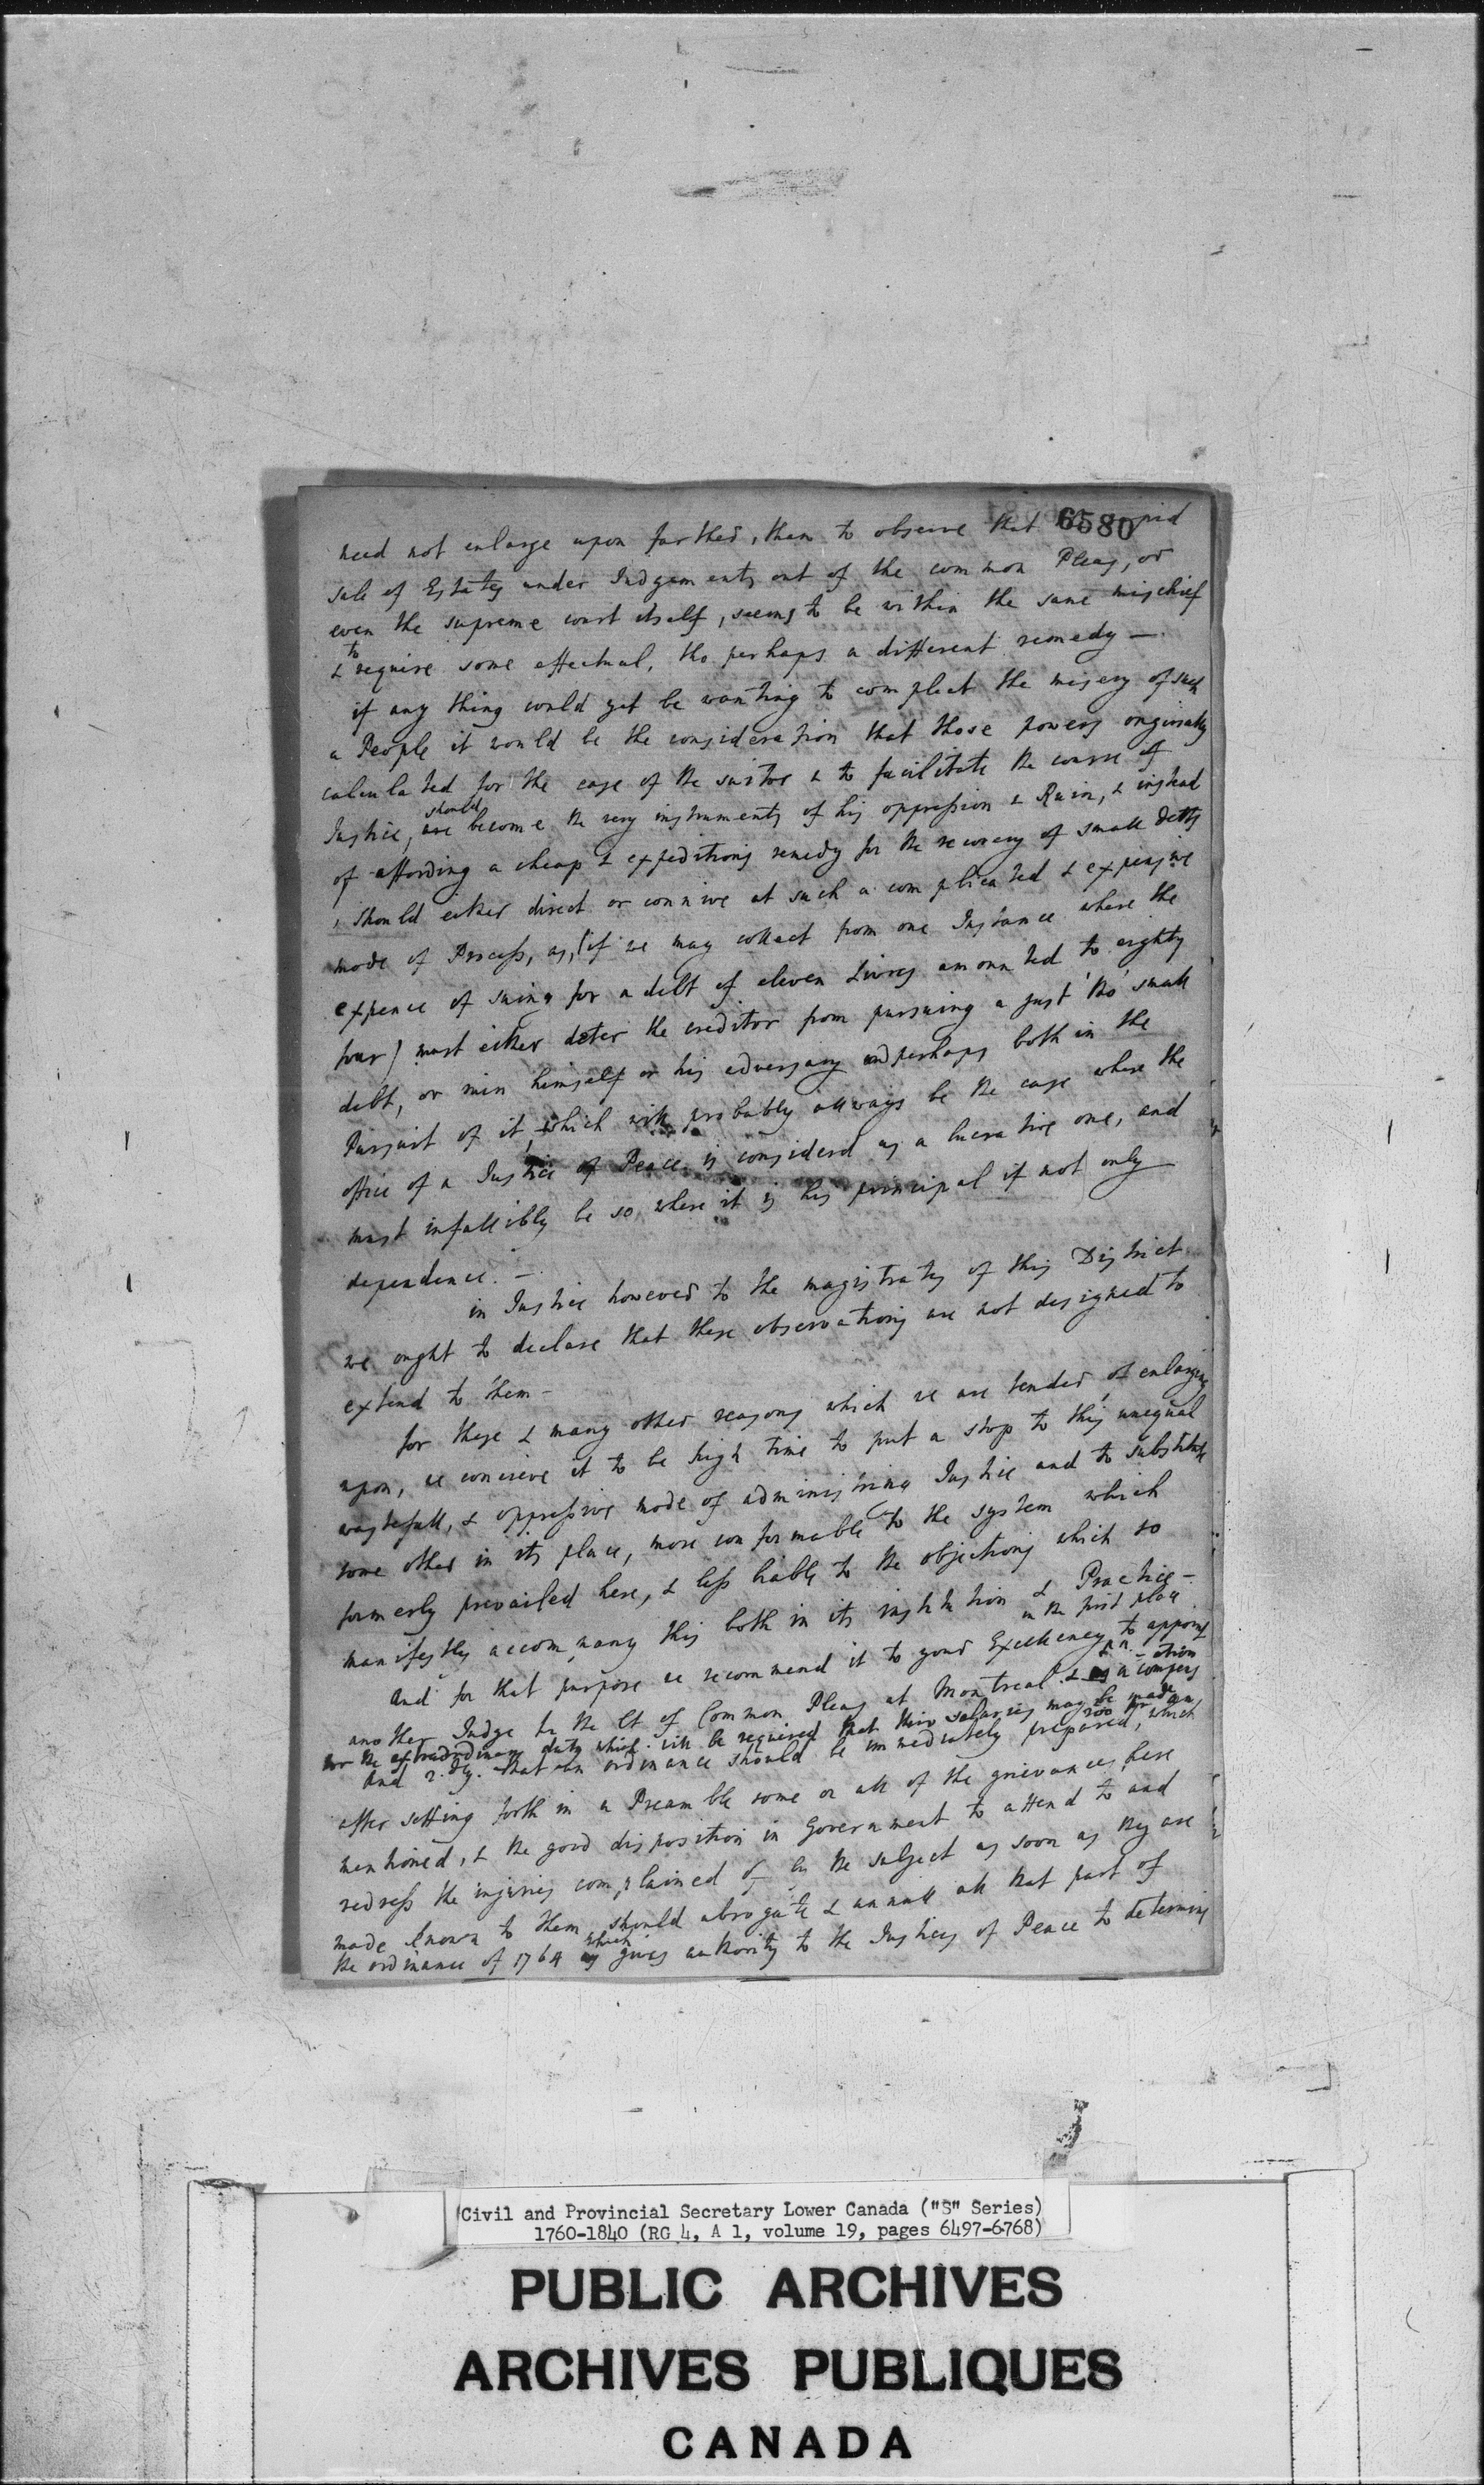 6580
need not enlarge upon farther, than to observe that the rapid
sale of Estates under Judgements out of the common Pleas, or
even the supreme court itself, seems to be within the same mischief
& to require some effectual, tho perhaps a different remedy —
if any thing could yet be wanting to compleat the misery of such
a People it would be the consideration that those powers originally
calculated for the ease of the suitor & to facilitate the course of
Justice, should become the very instruments of his oppression & Ruin, & instead
of affording a cheap & expeditious remedy for the recovery of small debts
, should either direct or connive at such a complicated & expensive
mode of Process, as, (if we may collect from one Instance where the
expence of suing for a debt of eleven Livres amounted to eighty
four) must either deter the creditor from pursuing a just tho' small
debt, or ruin himself or his adversary and perhaps both in the
Pursuit of it, which will probably allways be the case where the
office of a Justice of Peace is considerd as a lucrative one, and
must infallibly be so where it is his principal if not only
dependence. —
in Justice however to the magistrates of this District
we ought to declare that these observations are not designed to
extend to them —
for these & many other reasons which we are tender of enlarging
upon, we concieve it to be high time to put a stop to this unequal
wastefull, & oppressive mode of administring Justice and to substitute
some other in its place, more conformable to the system which
formerly prevailed here, & less liable to the objections which so
manifestly accompany this both in its institution & Practice —
in the first place
And for that purpose we recommend it to your Excellency to appoint
another Judge to the Ct of Common Pleas at Montreal & in a compensation
for the extraordinary duty which will be required that their salaries may be made 200 pr an,
And 2.dly. that an ordinance should be immediately prepared, which
after setting forth in a Preamble some or all of the grievances here
mentioned, & the good disposition in Government to attend to and
redress the injuries complained of by the subject as soon as they are
made known to them, should abrogate & annull all that part of
the ordinance of 1764 which gives authority to the Justices of Peace to determine
Civil and Provincial Secretary Lower Canada ("S" Series)
1760-1840 (RG 4, A 1, volume 19, pages 6497-6768)
PUBLIC ARCHIVES
ARCHIVES PUBLIQUES
CANADA